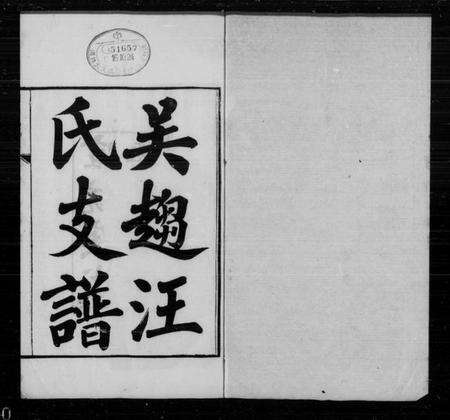 吴趨汪
氏支譜
51657